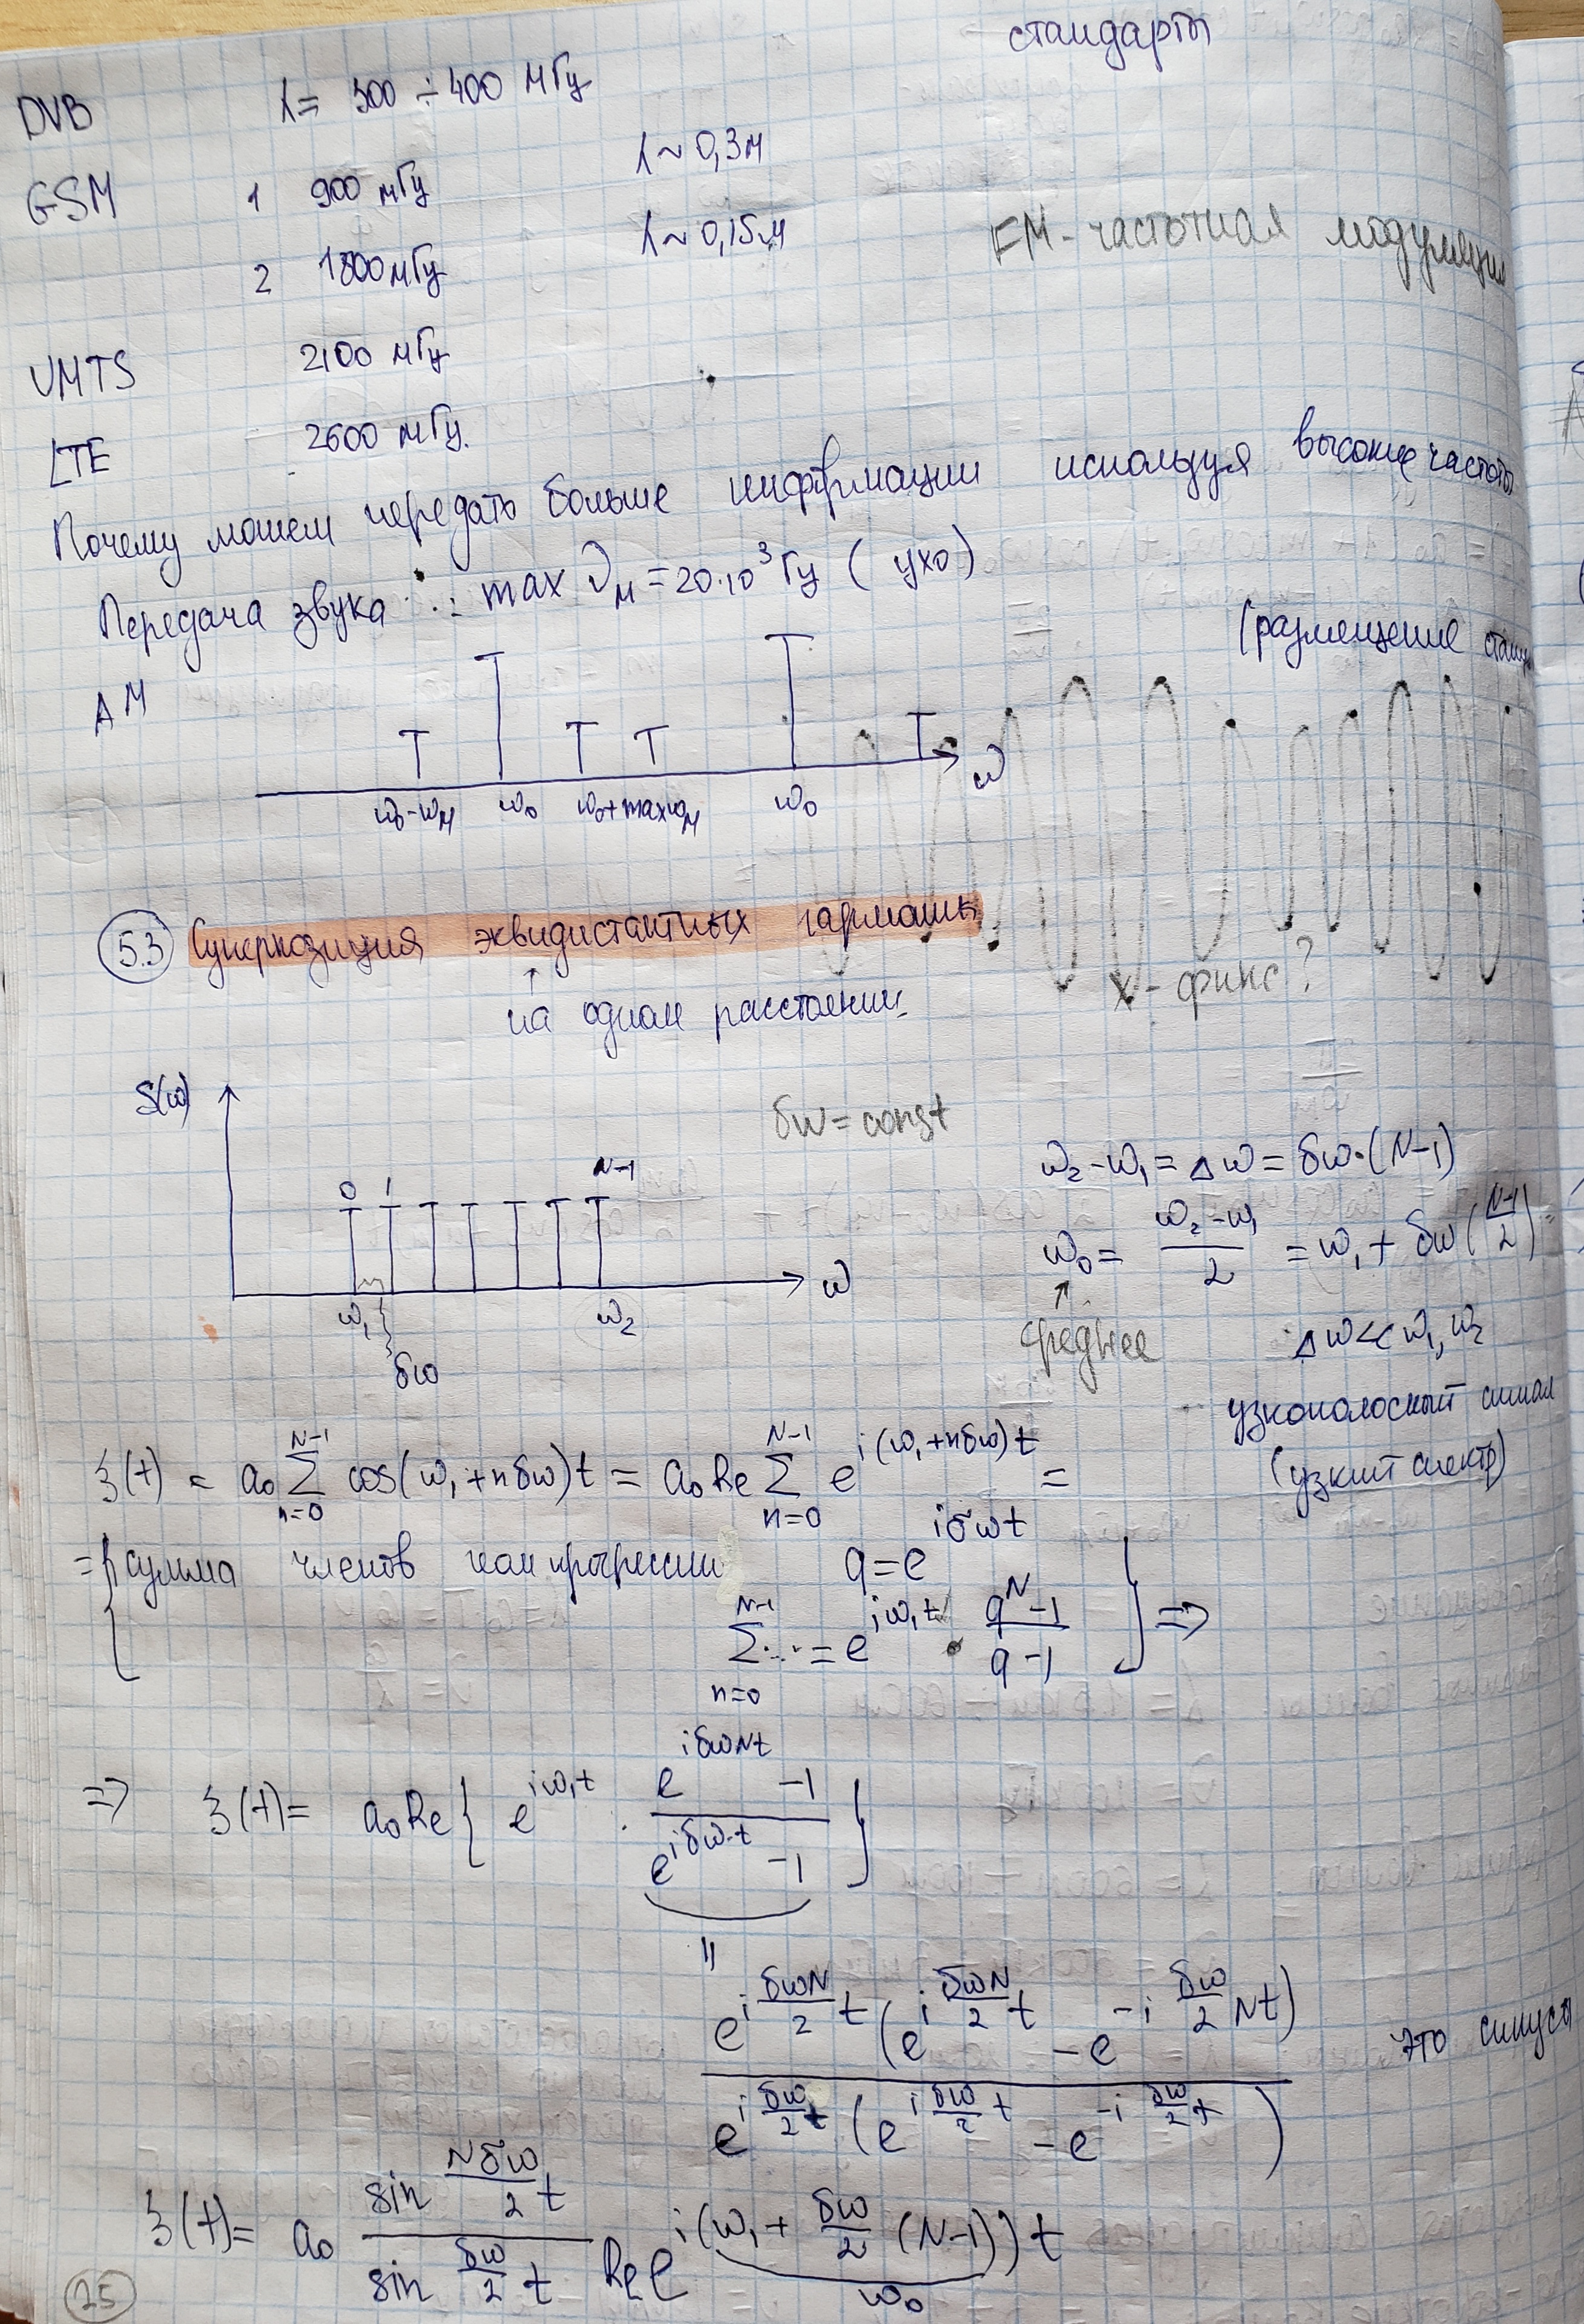 стандарты
DVB λ = 300 ÷ 400 МГц
GSM 1 900 МГц λ ~ 0,3м
2 1800 МГц λ ~ 0,15м
FM - частотная модуляция
UMTS 2100 МГц
LTE 2600 МГц.
Почему можем передать больше информации используя высокие частоты
Передача звука : max ν_M = 20·10³ Гц (ухо)
(размещение
AM
ω₀-ω_M ω₀ ω₀+maxω_M ω₀ ω
5.3 Суперпозиция эквидистантных гармоник
↑
на одном расстоянии
x - фикс?
S(ω) δω = const
0 1 N-1
ω₂ - ω₁ = Δω = δω·(N-1)
ω₀ = (ω₂ - ω₁)/2 = ω₁ + δω((N-1)/2) =
↑
среднее
ω₁ ω₂ ω
δω
Δω << ω₁, ω₂
узкополосный сигнал
(узкий спектр)
ξ(t) = a₀ Σ_{n=0}^{N-1} cos(ω₁+nδω)t = a₀ Re Σ_{n=0}^{N-1} e^{i(ω₁+nδω)t} =
= { сумма членов геом прогрессии q = e^{iδωt}
Σ_{n=0}^{N-1} ... = e^{iω₁t} · (q^N - 1)/(q - 1) } ⇒
⇒ ξ(t) = a₀ Re { e^{iω₁t} · (e^{iδωNt} - 1)/(e^{iδω·t} - 1) }
||
e^{i(δωN/2)t} (e^{i(δωN/2)t} - e^{-i(δω/2)Nt}) / e^{i(δω/2)t} (e^{i(δω/2)t} - e^{-i(δω/2)t}) это синусы
ξ(t) = a₀ (sin (Nδω/2)t)/(sin (δω/2)t) Re e^{i(ω₁ + (δω/2)(N-1))t}
ω₀
25